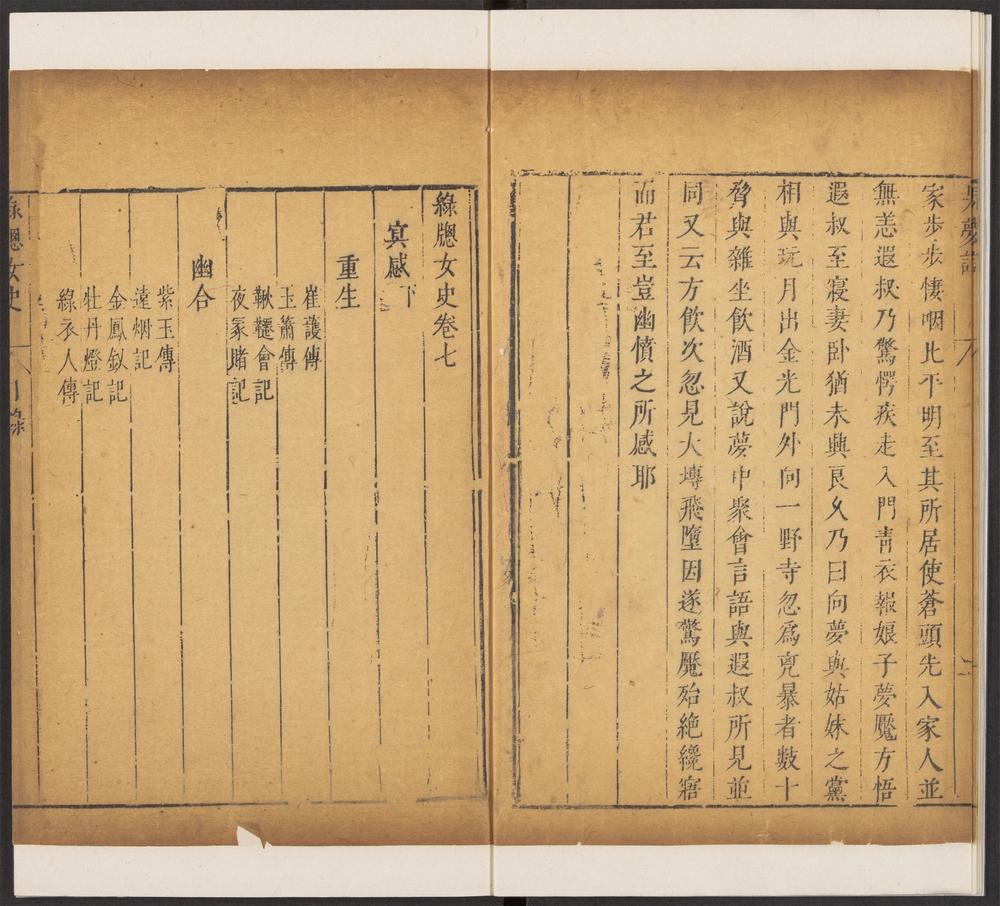 家步步悽咽比平明至其所居使蒼頭先入家人並
無恙遐叔乃驚愕疾走入門青衣報娘子夢魘方悟
遐叔至寢妻臥猶未興良久乃曰向夢與姑妹之黨
相與玩月出金光門外向一野寺忽爲兇暴者數十
脅與雜坐飲酒又說夢中聚會言語與遐叔所見並
同又云方飲次忽見大塼飛墮因遂驚魘殆絶纔寤
而君至豈幽憤之所感耶
綠牎女史卷七
冥感下
重生
崔護傳
玉簫傳
鞦韆會記
夜冢賭記
幽合
紫玉傳
遠烟記
金鳳釵記
牡丹燈記
綠衣人傳
綠牎女史
目錄